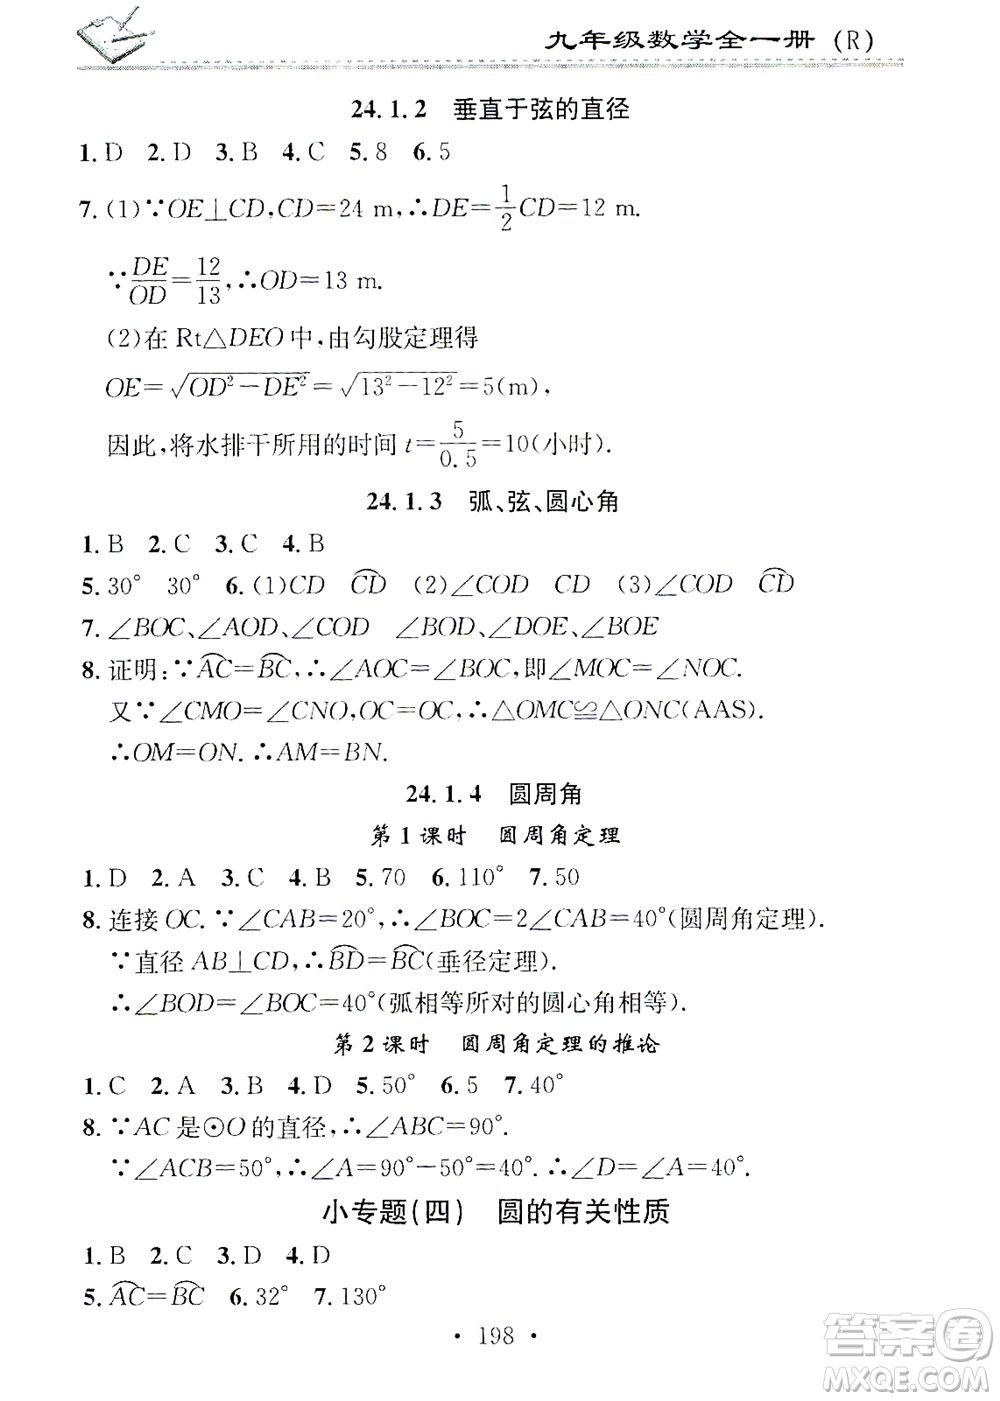 九年级数学全一册(R)
24.1.2 垂直于弦的直径
1.D 2.D 3.B 4.C 5.8 6.5
7.(1)∵OE⊥CD,CD=24 m,∴DE=1/2CD=12 m.
∵DE/OD=12/13,∴OD=13 m.
(2)在 Rt△DEO 中,由勾股定理得
OE=√(OD²-DE²)=√(13²-12²)=5(m),
因此,将水排干所用的时间 t=5/0.5=10(小时).
24.1.3 弧、弦、圆心角
1.B 2.C 3.C 4.B
5.30° 30° 6.(1)CD ⌒CD (2)∠COD CD (3)∠COD ⌒CD
7.∠BOC、∠AOD、∠COD ∠BOD、∠DOE、∠BOE
8.证明:∵⌒AC=⌒BC,∴∠AOC=∠BOC,即∠MOC=∠NOC.
又∵∠CMO=∠CNO,OC=OC,∴△OMC≌△ONC(AAS).
∴OM=ON.∴AM=BN.
24.1.4 圆周角
第1课时 圆周角定理
1.D 2.A 3.C 4.B 5.70 6.110° 7.50
8.连接 OC.∵∠CAB=20°,∴∠BOC=2∠CAB=40°(圆周角定理).
∵直径 AB⊥CD,∴⌒BD=⌒BC(垂径定理).
∴∠BOD=∠BOC=40°(弧相等所对的圆心角相等).
第2课时 圆周角定理的推论
1.C 2.A 3.B 4.D 5.50° 6.5 7.40°
8.∵AC 是⊙O 的直径,∴∠ABC=90°.
∵∠ACB=50°,∴∠A=90°-50°=40°.∴∠D=∠A=40°.
小专题(四) 圆的有关性质
1.B 2.C 3.D 4.D
5.⌒AC=⌒BC 6.32° 7.130°
• 198 •
答案圈
MXQE.COM